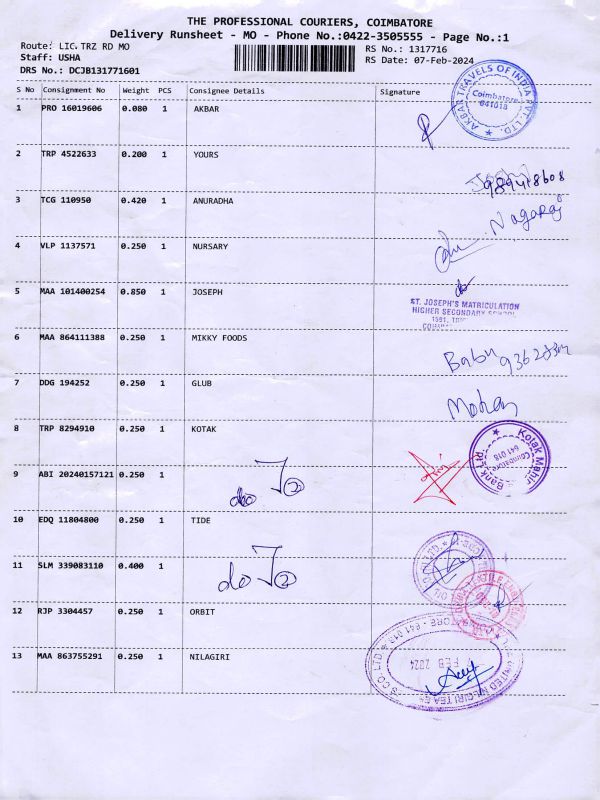 THE PROFESSIONAL COURIERS, COIMBATORE
Delivery Runsheet - MO - Phone No.:0422-3505555 - Page No.:1
Route: LIC TRZ RD MO
RS No.: 1317716
Staff: USHA
RS Date: 07-Feb-2024
DRS No.: DCJB131771601
S No Consignment No Weight PCS Consignee Details Signature
1 PRO 16019606 0.080 1 AKBAR
AKBAR TRAVELS OF INDIA PVT. LTD.
Coimbatore
641018
2 TRP 4522633 0.200 1 YOURS
3 TCG 110950 0.420 1 ANURADHA
Nagaraj
4 VLP 1137571 0.250 1 NURSARY
5 MAA 101400254 0.850 1 JOSEPH
ST. JOSEPH'S MATRICULATION
HIGHER SECONDARY SCHOOL
6 MAA 864111388 0.250 1 MIKKY FOODS
Babu
7 DDG 194252 0.250 1 GLUB
Mohan
8 TRP 8294910 0.250 1 KOTAK
Kotak Mahin
Bank Ltd
Coimbatore
641 018
9 ABI 20240157121 0.250 1
do
10 EDQ 11804800 0.250 1 TIDE
11 SLM 339083110 0.400 1
do
12 RJP 3304457 0.250 1 ORBIT
13 MAA 863755291 0.250 1 NILAGIRI
FEB 2024